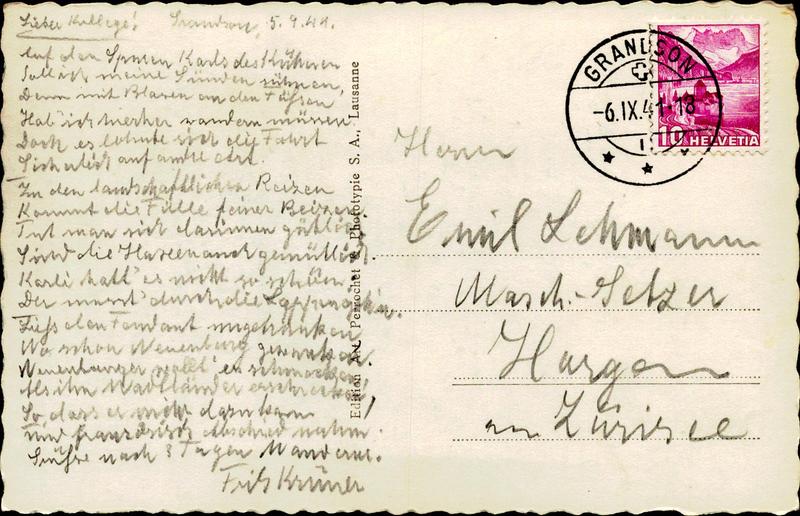 Lieber Kollege! Grandson, 5.9.41.
Auf den Spuren Karls des Kühnen
Soll ich meine Sünden sühnen,
Denn mit Blasen an den Füssen
Hab' ich hierher wandern müssen
Doch es lohnte sich die Fahrt
Sicherlich auf andre Art.
Zu den landschaftlichen Reizen
Kommt die Fülle feiner Beizen
Tut man sich darinnen gütlich
Sind die
Karli hatt' es nicht so schön
Der musst' durch die
Liess den Fendant ungetrunken
Wo schon Neuenburg gewunken
Neuenburger wollt' er schmecken,
Als ihn erschrecken,
So, dass er nicht dazu kam
Und französisch Abschied nahm.
Grüsse nach 3 Tagen Wandern.
Fritz Krüner
Edition Art. Perrochet & Phototypie S. A., Lausanne
GRANDSON
-6.IX.41-18
10 HELVETIA
Herrn
Emil Lehmann
Masch.-Setzer
Horgen
am Zürisee